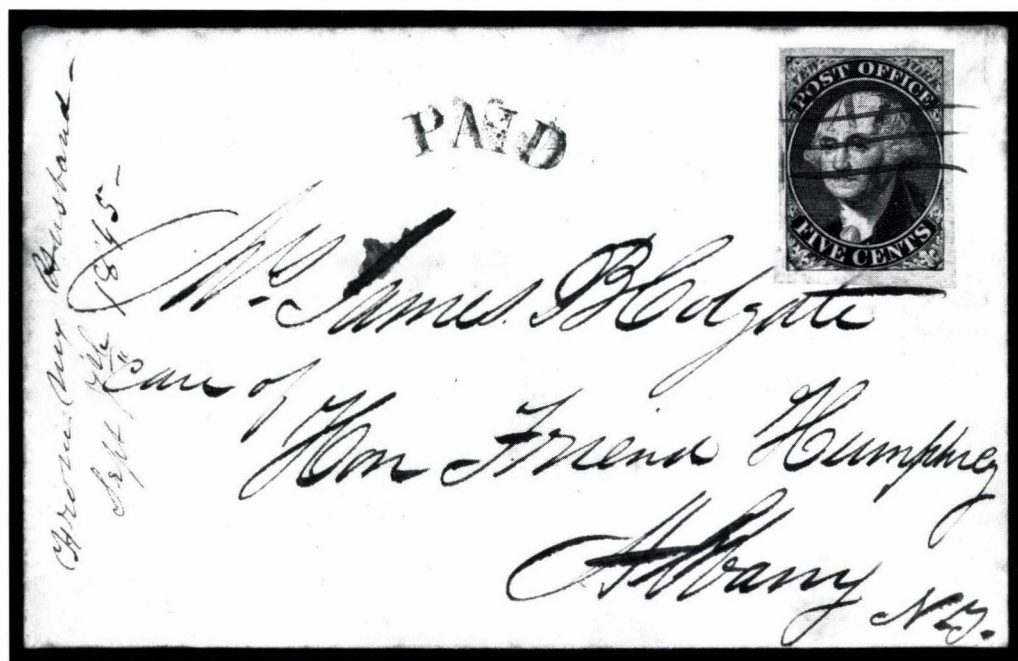 From my Husband -
Sept 7th 1845 -
PAID
NEW YORK
POST OFFICE
FIVE CENTS
Mrs James B Colgate
Care of
Hon Friend Humphrey
Albany
N.Y.